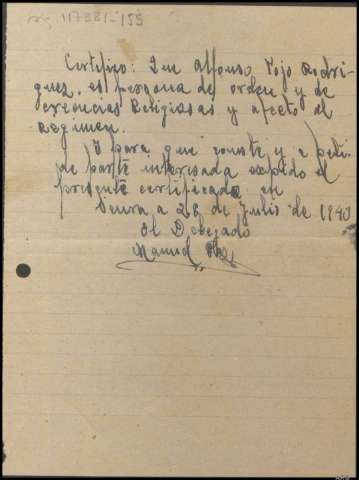 117381-155
Certifizo: Que Alfonso Pojo Rodri
guez. es persona de orden y de
creencias Religiosas y afecto al
Regimen.
Y para que conste y a peti-
de parte interisada expido el
presente certificado en
a 28 de Julio de 1940
El Delegado
Manuel